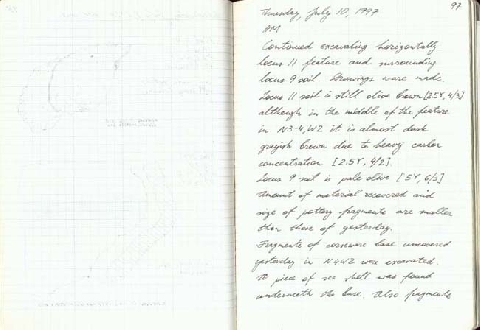 97
Tuesday, July 10, 1997
AM
Continued excavating horizontally
locus 11 feature and surrounding
locus 9 soil. Drawings were made.
Locus 11 soil is still olive brown [2.5Y, 4/3]
although in the middle of the feature
in N3-4, W2 it is almost dark
grayish brown due to heavy carbon
concentration [2.5Y, 4/2].
Locus 9 soil is pale olive [5Y, 6/3]
Amount of material recovered and
size of pottery fragments are smaller
than those of yesterday.
Fragments of coarseware base uncovered
yesterday in N4W2 were excavated.
A piece of sea shell was found
underneath the base. Also fragments